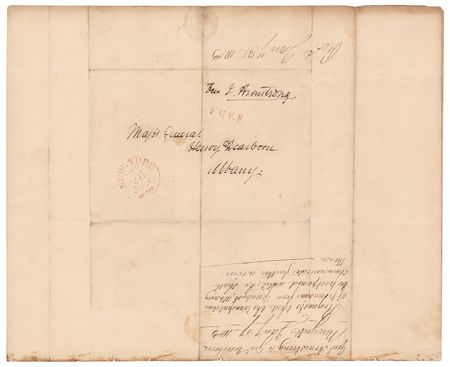 Rec'd Jany 31. 1813
Gen J. Armstrong.
FREE
Major General
Henry Dearborn
Albany.
NEW-YORK
Genl Armstrong to Genl Dearborn
Jany 27. 1813
Requests that the transportation
of from Greenbush & Albany
be postponed until he shall
communicate further advice
them